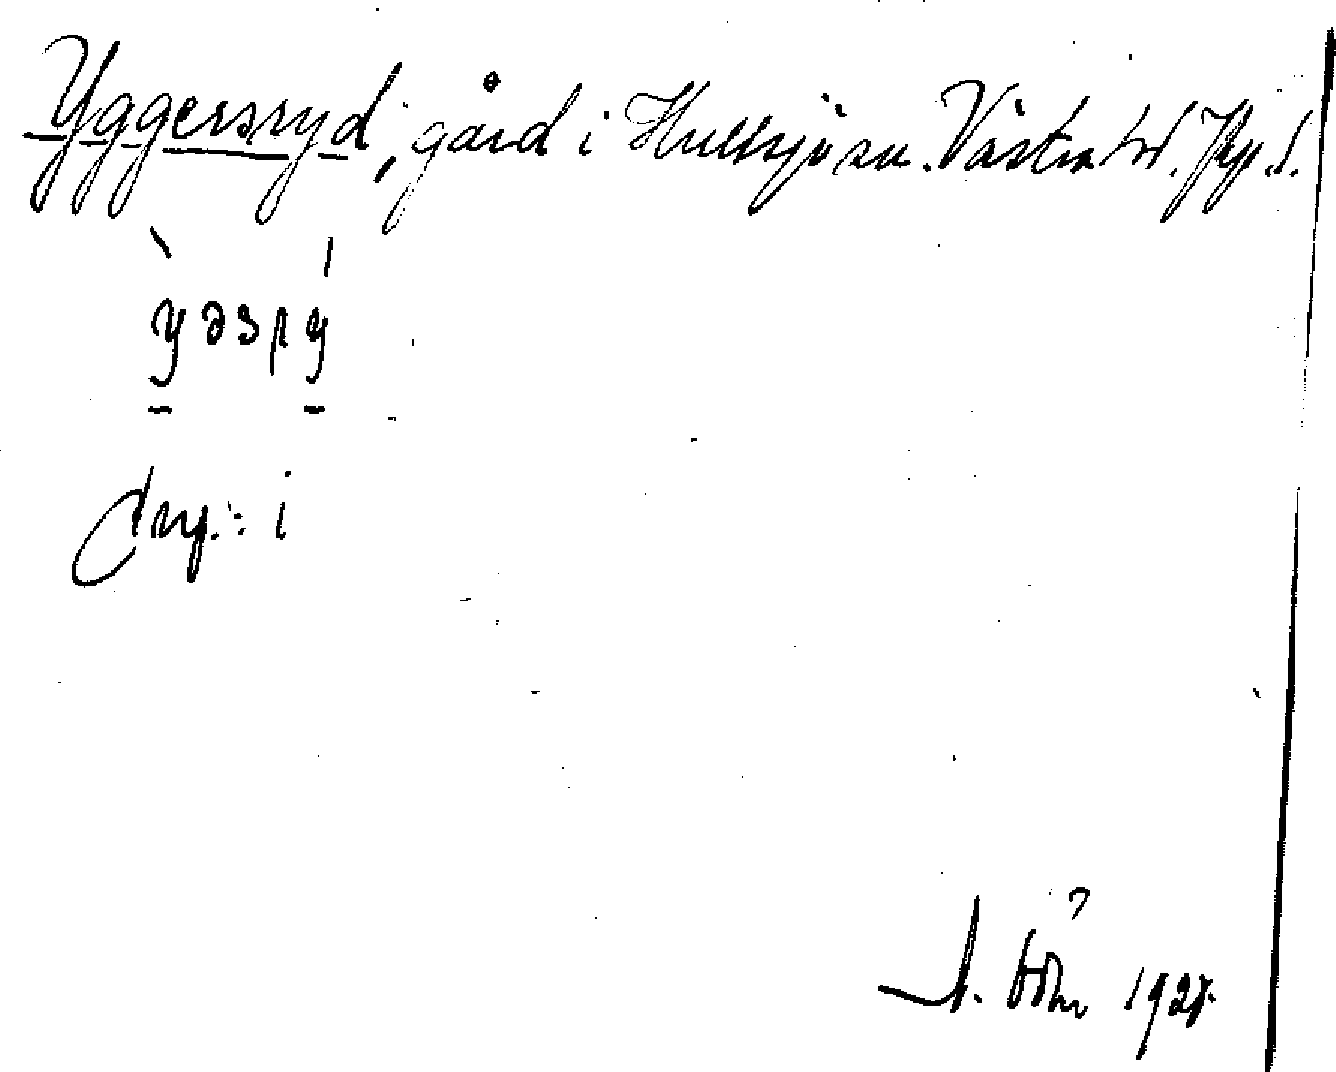 Yggersryd, gård i Hultsjö sn. Västra hd. Jkp. l.
yəsry
Prep.: i
1927.